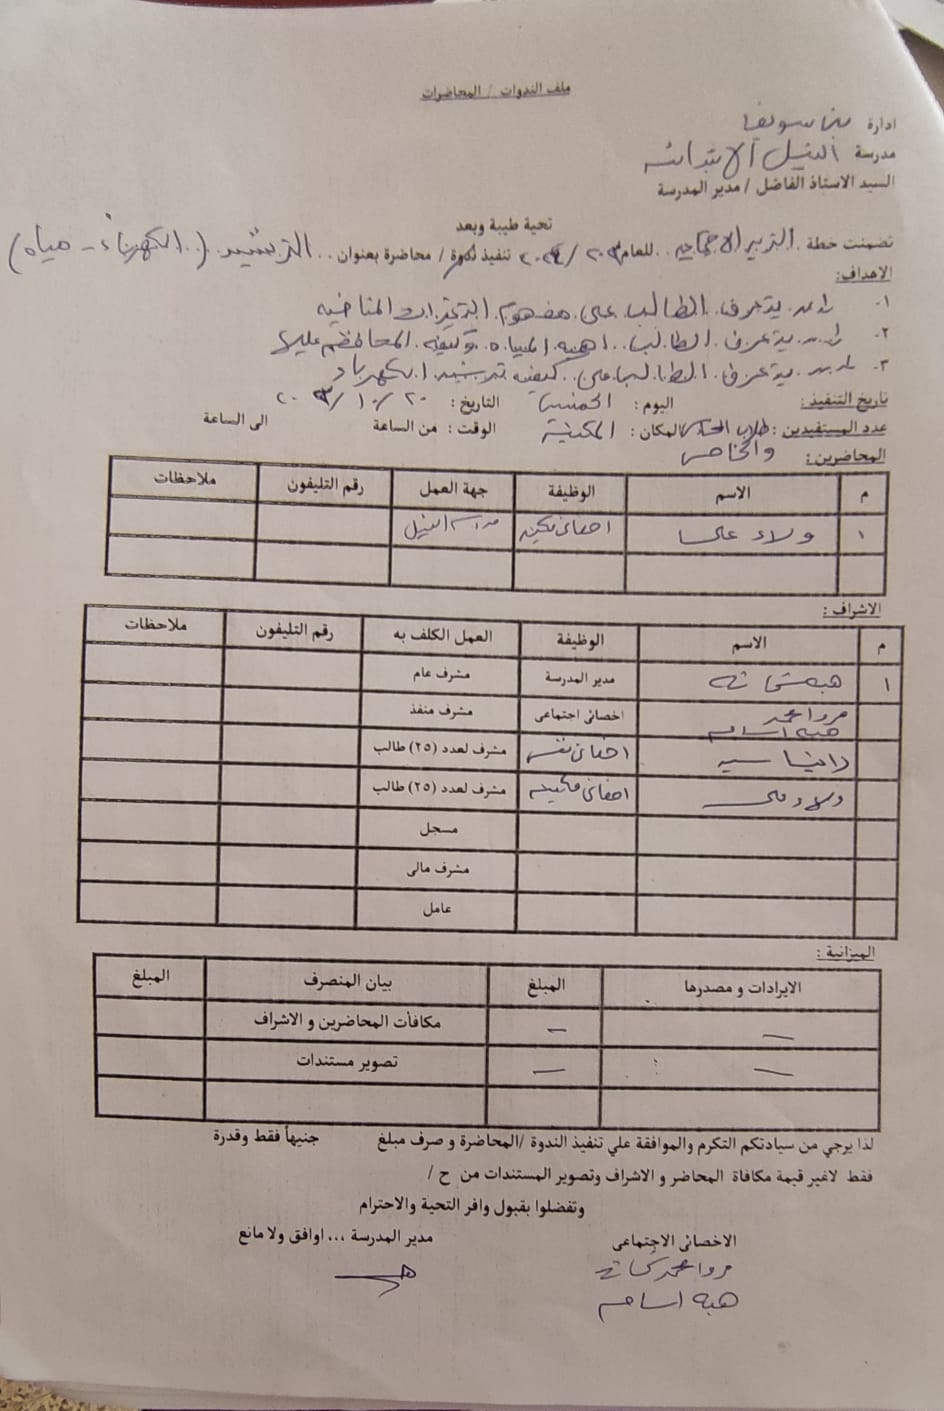 ملف الندوات / المحاضرات
ادارة بنى سويف
مدرسة النيل الابتدائيه
السيد الاستاذ الفاضل / مدير المدرسة
تحية طيبة وبعد
تضمنت خطة التربيه الاجتماعيه للعام ٢٠٢٣ / ٢٠٢٤ تنفيذ ندوة / محاضرة بعنوان .. الترشيد (الكهرباء - مياه)
الاهداف:
١- ان يتعرف الطالب على مفهوم التغيرات المناخيه
٢- ان يتعرف الطالب اهميه المياه وكيفيه المحافظه عليها
٣- ان يتعرف الطالب على كيفيه ترشيد الكهرباء
تاريخ التنفيذ: اليوم: الخميس التاريخ: ٢٠ / ١٠ / ٢٠٢٣
عدد المستفيدين: طلاب المكان: المكتبة الوقت: من الساعة الى الساعة
والخامس
المحاضرين:
م الاسم الوظيفة جهة العمل رقم التليفون ملاحظات
١ ولاء على اخصائى مكتبه مدرسه النيل
الاشراف:
م الاسم الوظيفة العمل الكلف به رقم التليفون ملاحظات
١ هبه شحاته مدير المدرسة مشرف عام
مروا محمد
هبه اسامه اخصائى اجتماعى مشرف منفذ
دانيا سيد اخصائى نفسى مشرف لعدد (٢٥) طالب
ولاء على اخصائى مكتبه مشرف لعدد (٢٥) طالب
مسجل
مشرف مالى
عامل
الميزانية:
الايرادات و مصدرها المبلغ بيان المنصرف المبلغ
— — مكافأت المحاضرين و الاشراف
— — تصوير مستندات
لذا يرجي من سيادتكم التكرم والموافقة علي تنفيذ الندوة /المحاضرة و صرف مبلغ جنيهاً فقط وقدرة
فقط لاغير قيمة مكافاة المحاضر و الاشراف وتصوير المستندات من ح /
وتفضلوا بقبول وافر التحية والاحترام
الاخصائى الاجتماعى مدير المدرسة ... اوافق ولا مانع
مروا محمد شحاته
هبه اسامه